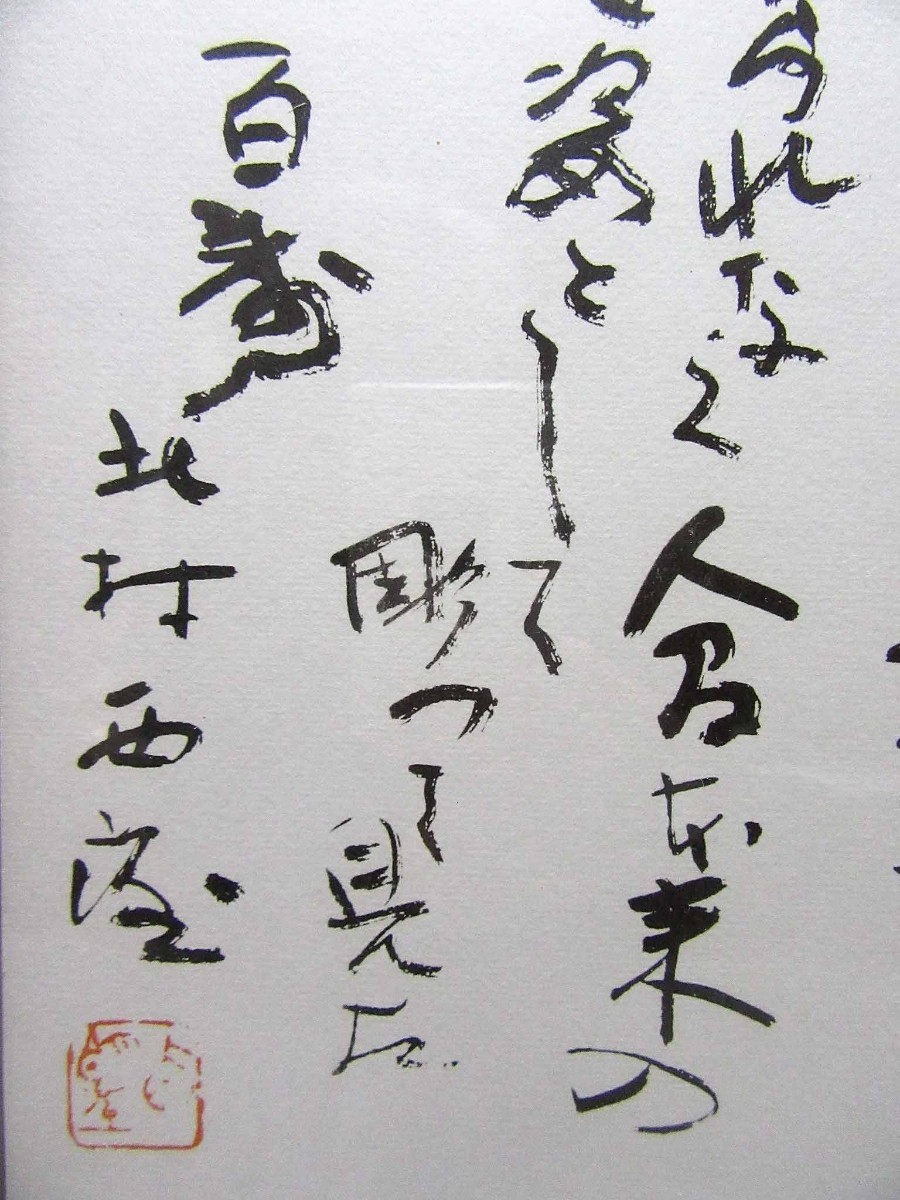 れなく人間本来の
姿として
彫つて見た
百寿
北村西望